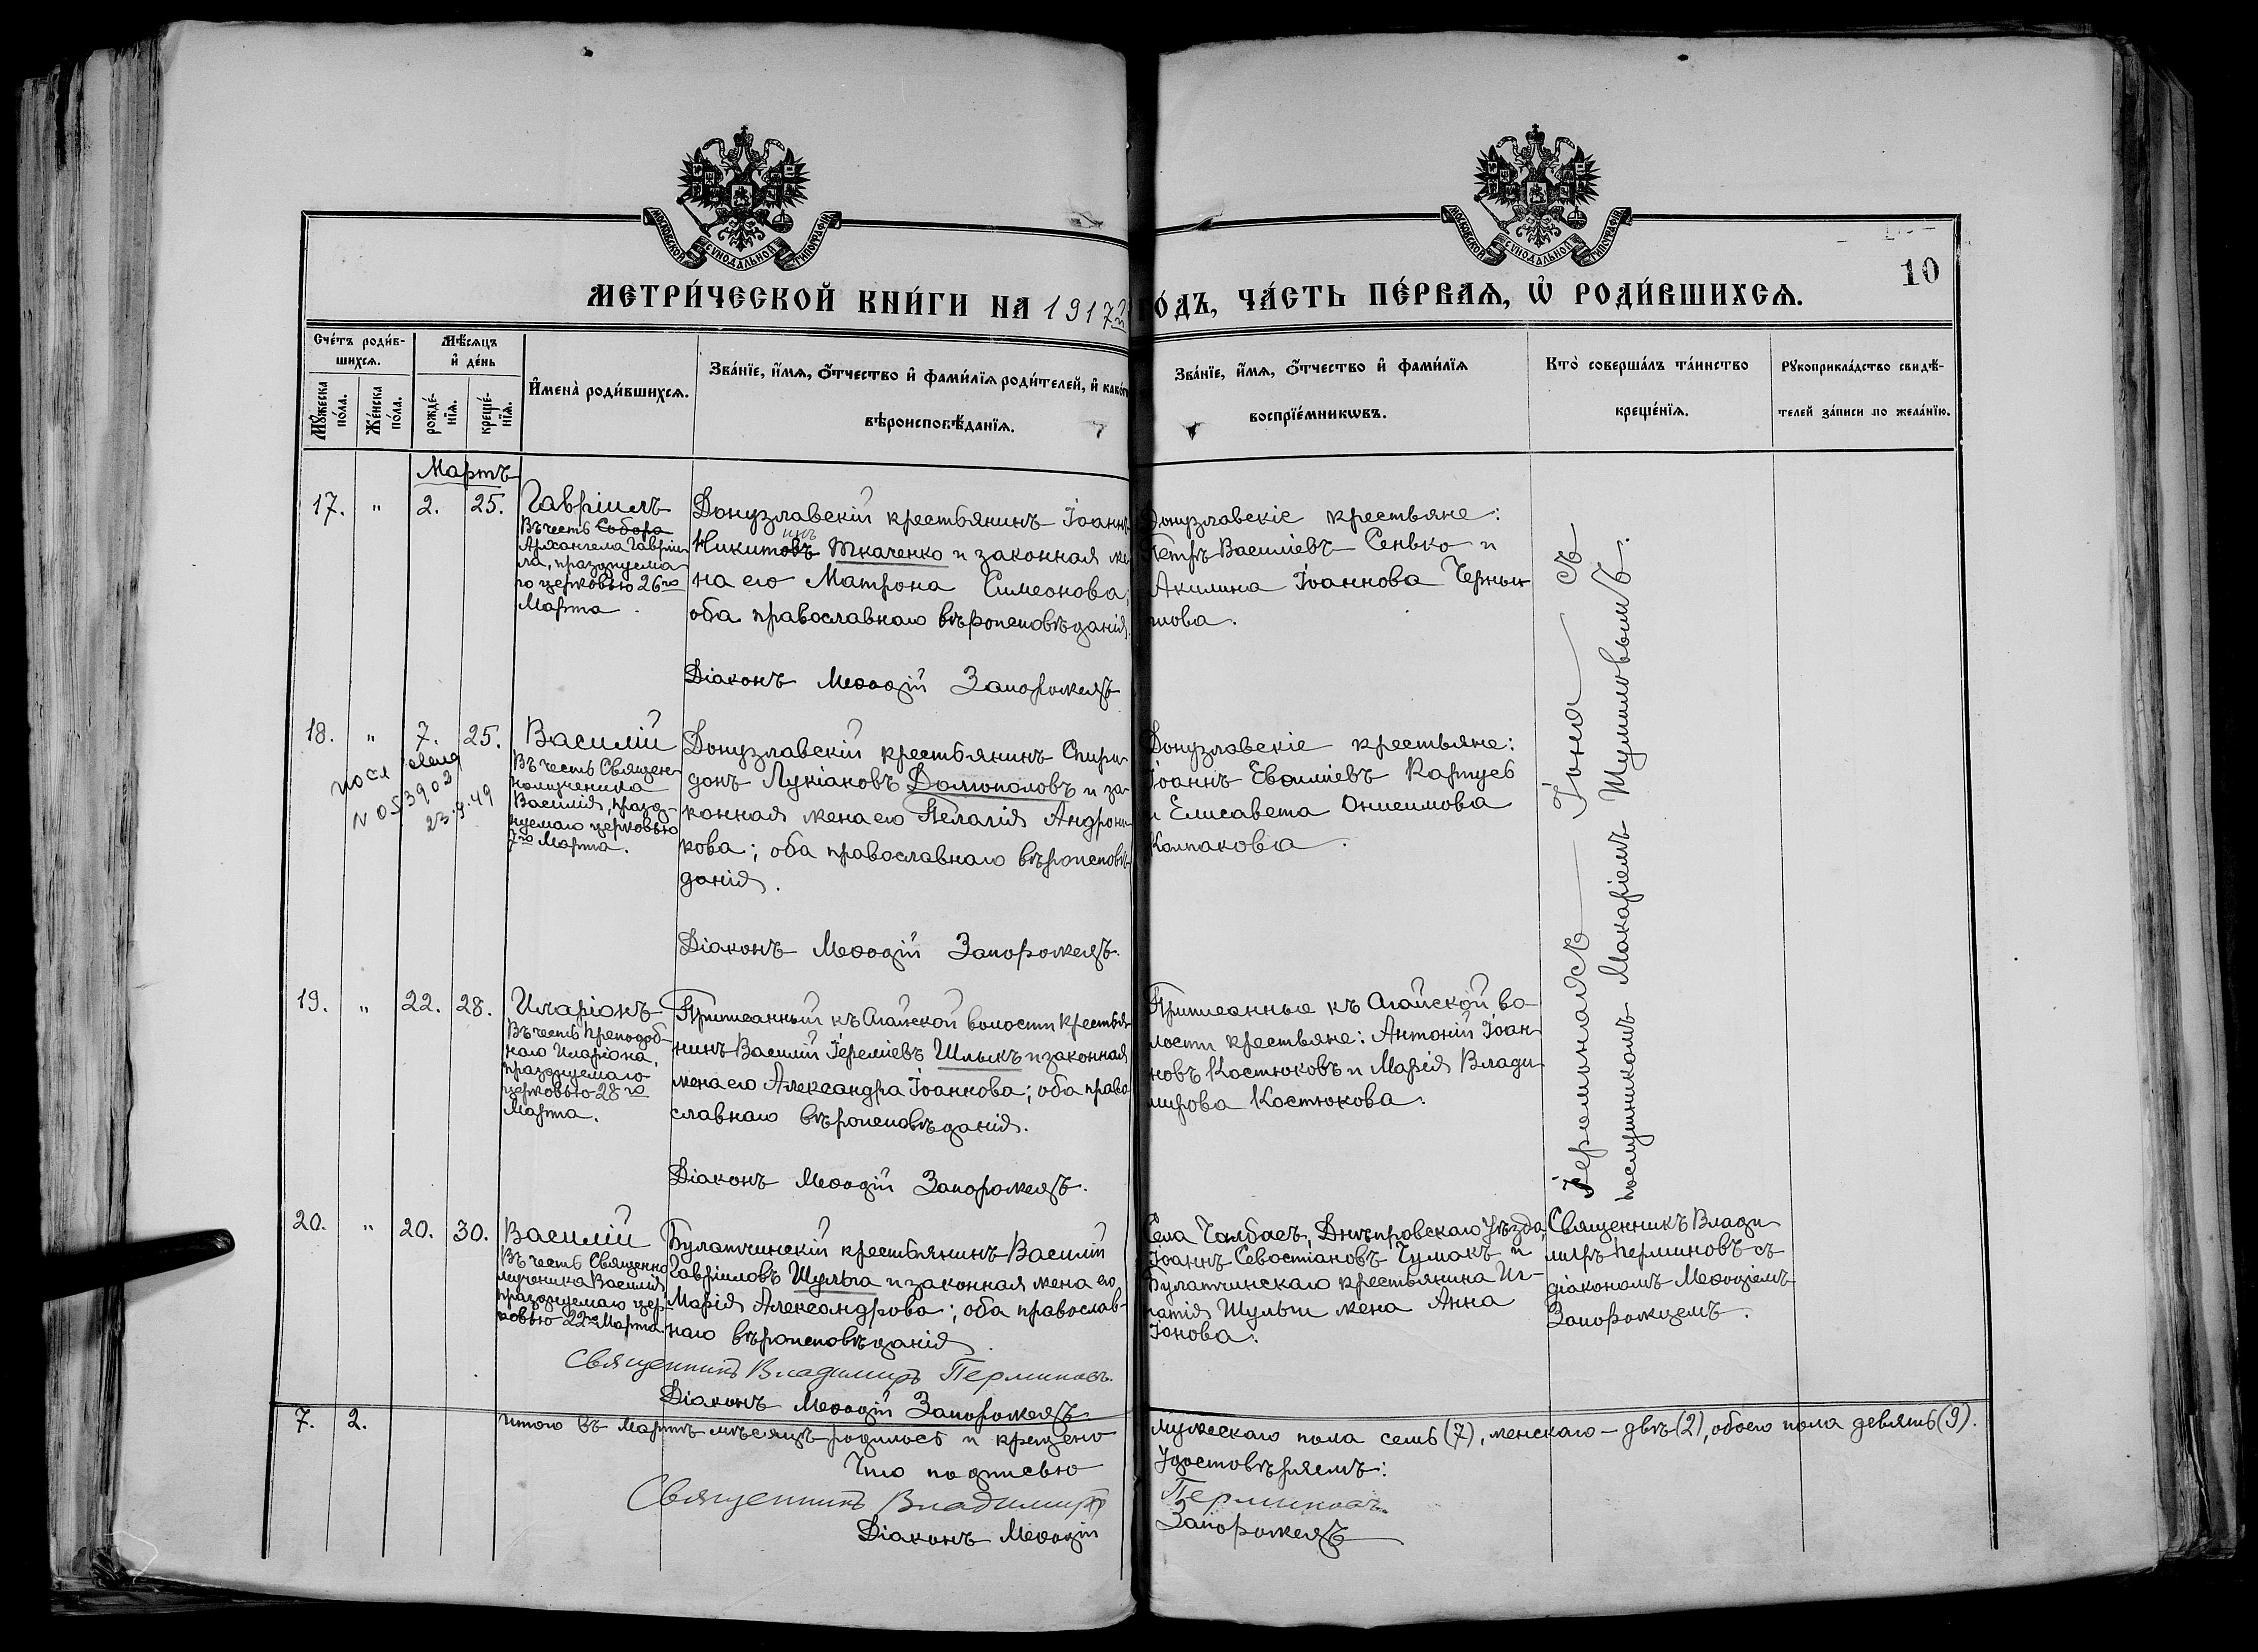 МОСКОВСКОЙ СѴНОДАЛЬНОЙ ТИПОГРАФІИ
МОСКОВСКОЙ СѴНОДАЛЬНОЙ ТИПОГРАФІИ
10
МЕТРИ́ЧЕСКОЙ КНИ́ГИ НА 1917й ГО́ДЪ, ЧА́СТЬ ПЕ́РВАѦ, Ѡ РОДИ́ВШИХСѦ.
Сче́тъ роди́в-
шихсѧ.
Мꙋ́жеска
по́ла.
Же́нска
по́ла.
Мѣ́сѧцъ
и де́нь
рожде́-
нїѧ.
креще́-
нїѧ.
Имена̀ роди́вшихсѧ.
Зва́нїе, и́мѧ, о́тчество и фами́лїѧ роди́телей, и како́гѡ
вѣроисповѣ́данїѧ.
Зва́нїе, и́мѧ, о́тчество и фами́лїѧ
воспрїе́мникѡвъ.
Кто̀ соверша́лъ та́инство
креще́нїѧ.
Рꙋкоприкла́дство свидѣ́-
телей за́писи по жела́нїю.
Мартъ
17. " 2. 25.
Гавріилъ
Въ честь Собора
Архангела Гавріи-
ла, празднуема-
го церковью 26го
Марта.
Донузлавскій крестьянинъ Іоаннъ
Никитовъ инъ Ткаченко и законная же-
на его Матрона Симеонова;
оба православнаго вѣроисповѣданія.
Діаконъ Меѳодій Запорожецъ
Донузлавскіе крестьяне:
Петръ Василіевъ Сенько и
Акилина Іоаннова Черны-
шова.
18. " 7. 25.
N 053903
23.9.49
Василій
Въ честь Священ-
номученика
Василія, празд-
нуемаго церковью
7го Марта.
Донузлавскій крестьянинъ Спири-
донъ Лукіановъ Долгополовъ и за-
конная жена его Пелагія Андрони-
кова; оба православнаго вѣроисповѣ-
данія.
Діаконъ Меѳодій Запорожецъ.
Донузлавскіе крестьяне:
Іоаннъ Евѳиміевъ Картусь
и Елисавета Онисимова
Колпакова.
19. " 22. 28.
Иларіонъ
Въ честь Преподоб-
наго Иларіона,
празднуемаго
церковью 28го
Марта.
Приписанный къ Агайской волости крестья-
нинъ Василій Іереміевъ Шлыкъ и законная
жена его Александра Іоаннова; оба право-
славнаго вѣроисповѣданія.
Діаконъ Меѳодій Запорожецъ.
Приписанные къ Агайской во-
лости крестьяне: Антоній Іоан-
новъ Костюковъ и Марія Влади-
мирова Костюкова.
Іеромонахъ Іона съ
послушникомъ Макаріемъ Шумиловымъ.
20. " 20. 30.
Василій
Въ честь Священно-
мученика Василія,
празднуемаго цер-
ковью 22го Марта.
Булатчинскій крестьянинъ Василій
Гавріиловъ Шульга и законная жена его
Марія Александрова; оба православ-
наго вѣроисповѣданія.
Священникъ Владимиръ Перминовъ.
Діаконъ Меѳодій Запорожецъ
Села Чалбасъ, Днѣпровскаго уѣзда,
Іоаннъ Севостіановъ Чумакъ и
Булатчинскаго крестьянина Иг-
натія Шульги жена Анна
Іонова.
Священникъ Влади-
миръ Перминовъ съ
діакономъ Меѳодіемъ
Запорожцемъ.
7. 2. Итого въ Мартѣ мѣсяцѣ родилось и крещено мужескаго пола семь (7), женскаго - двѣ (2), обоего пола девять (9).
Что подписью Удостовѣряемъ:
Священникъ Владимиръ Перминовъ.
Діаконъ Меѳодій Запорожецъ